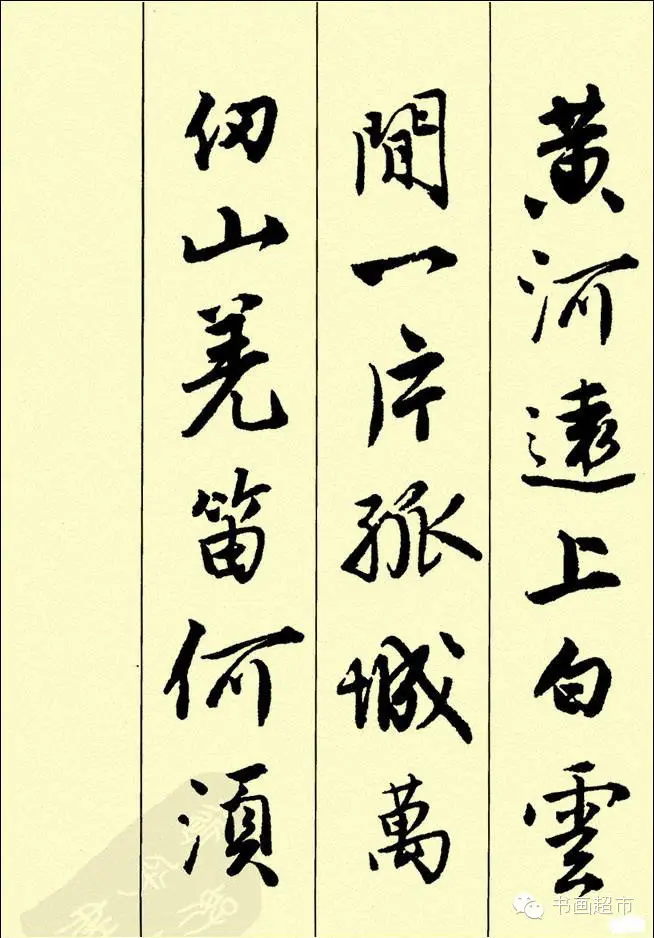 黄河遠上白雲
間一片孤城萬
仞山羌笛何須
书画超市